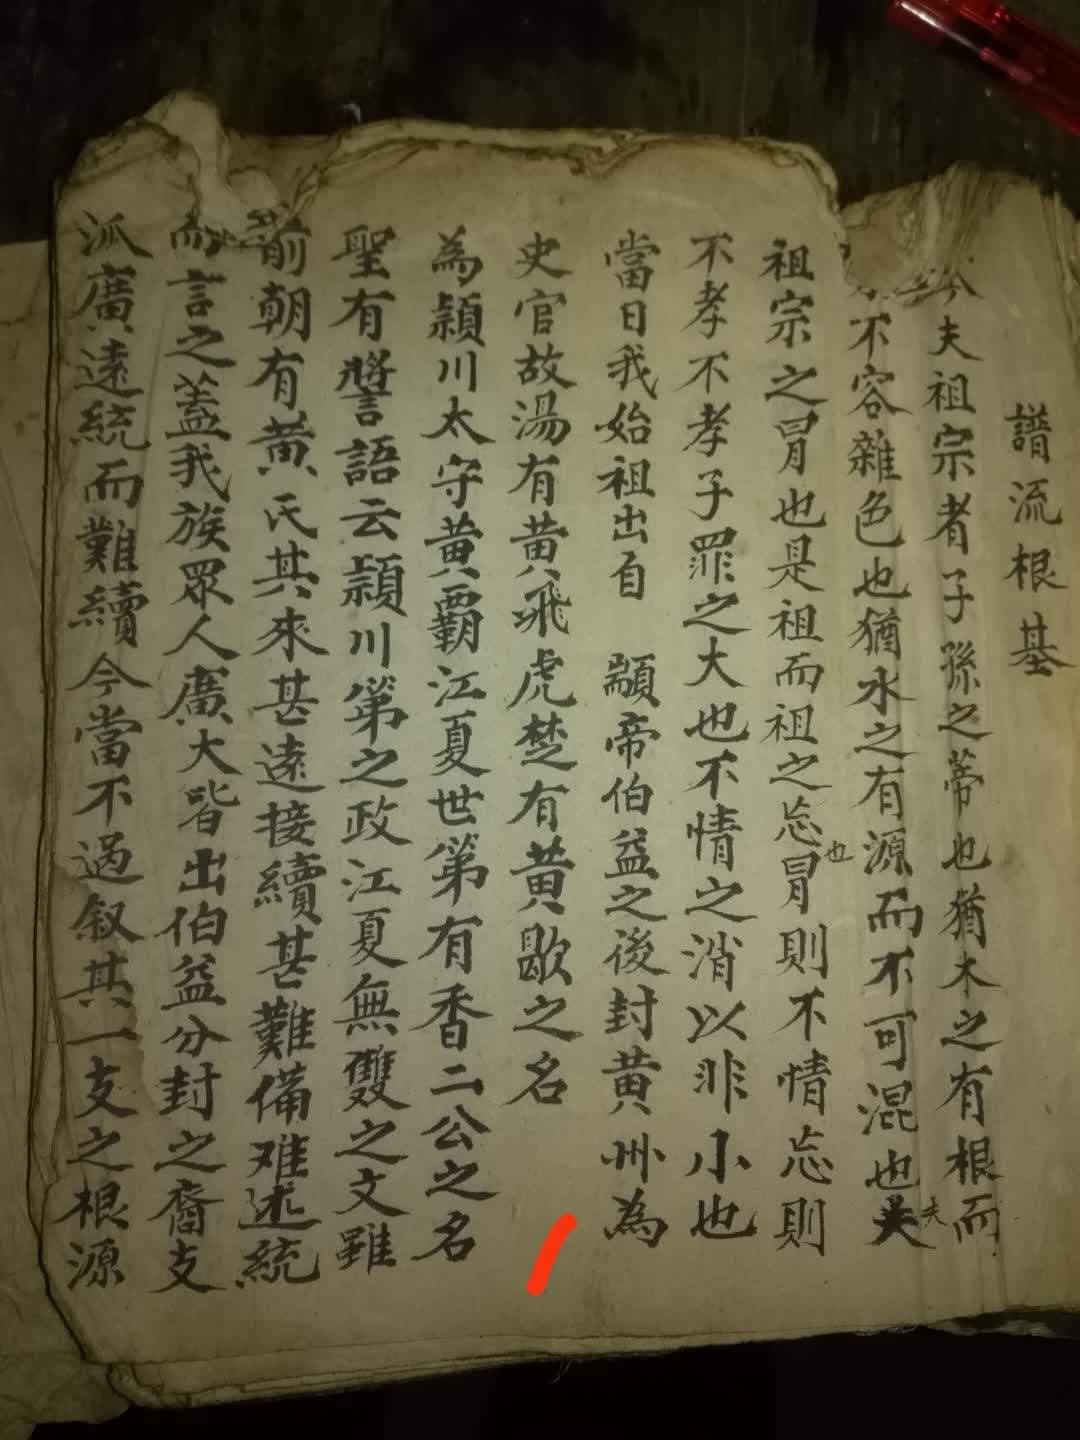 譜流根基
今夫祖宗者子孫之蒂也猶木之有根而
不容雜色也猶水之有源而不可混也夫
夫
祖宗之冐也是祖而祖之忘冐則不情忘則
也
不孝不孝子罪之大也不情之消以非小也
當日我始祖出自 顓帝伯益之後封黄州為
史官故湯有黄飛虎楚有黄歇之名
為頴川太守黄霸江夏世第有香二公之名
聖有譽語云頴川第之政江夏無雙之文雖
前朝有黄氏其來甚遠接續甚難備难述統
而言之蓋我族眾人廣大皆出伯益分封之裔支
泒廣遠統而難續今當不過叙其一支之根源